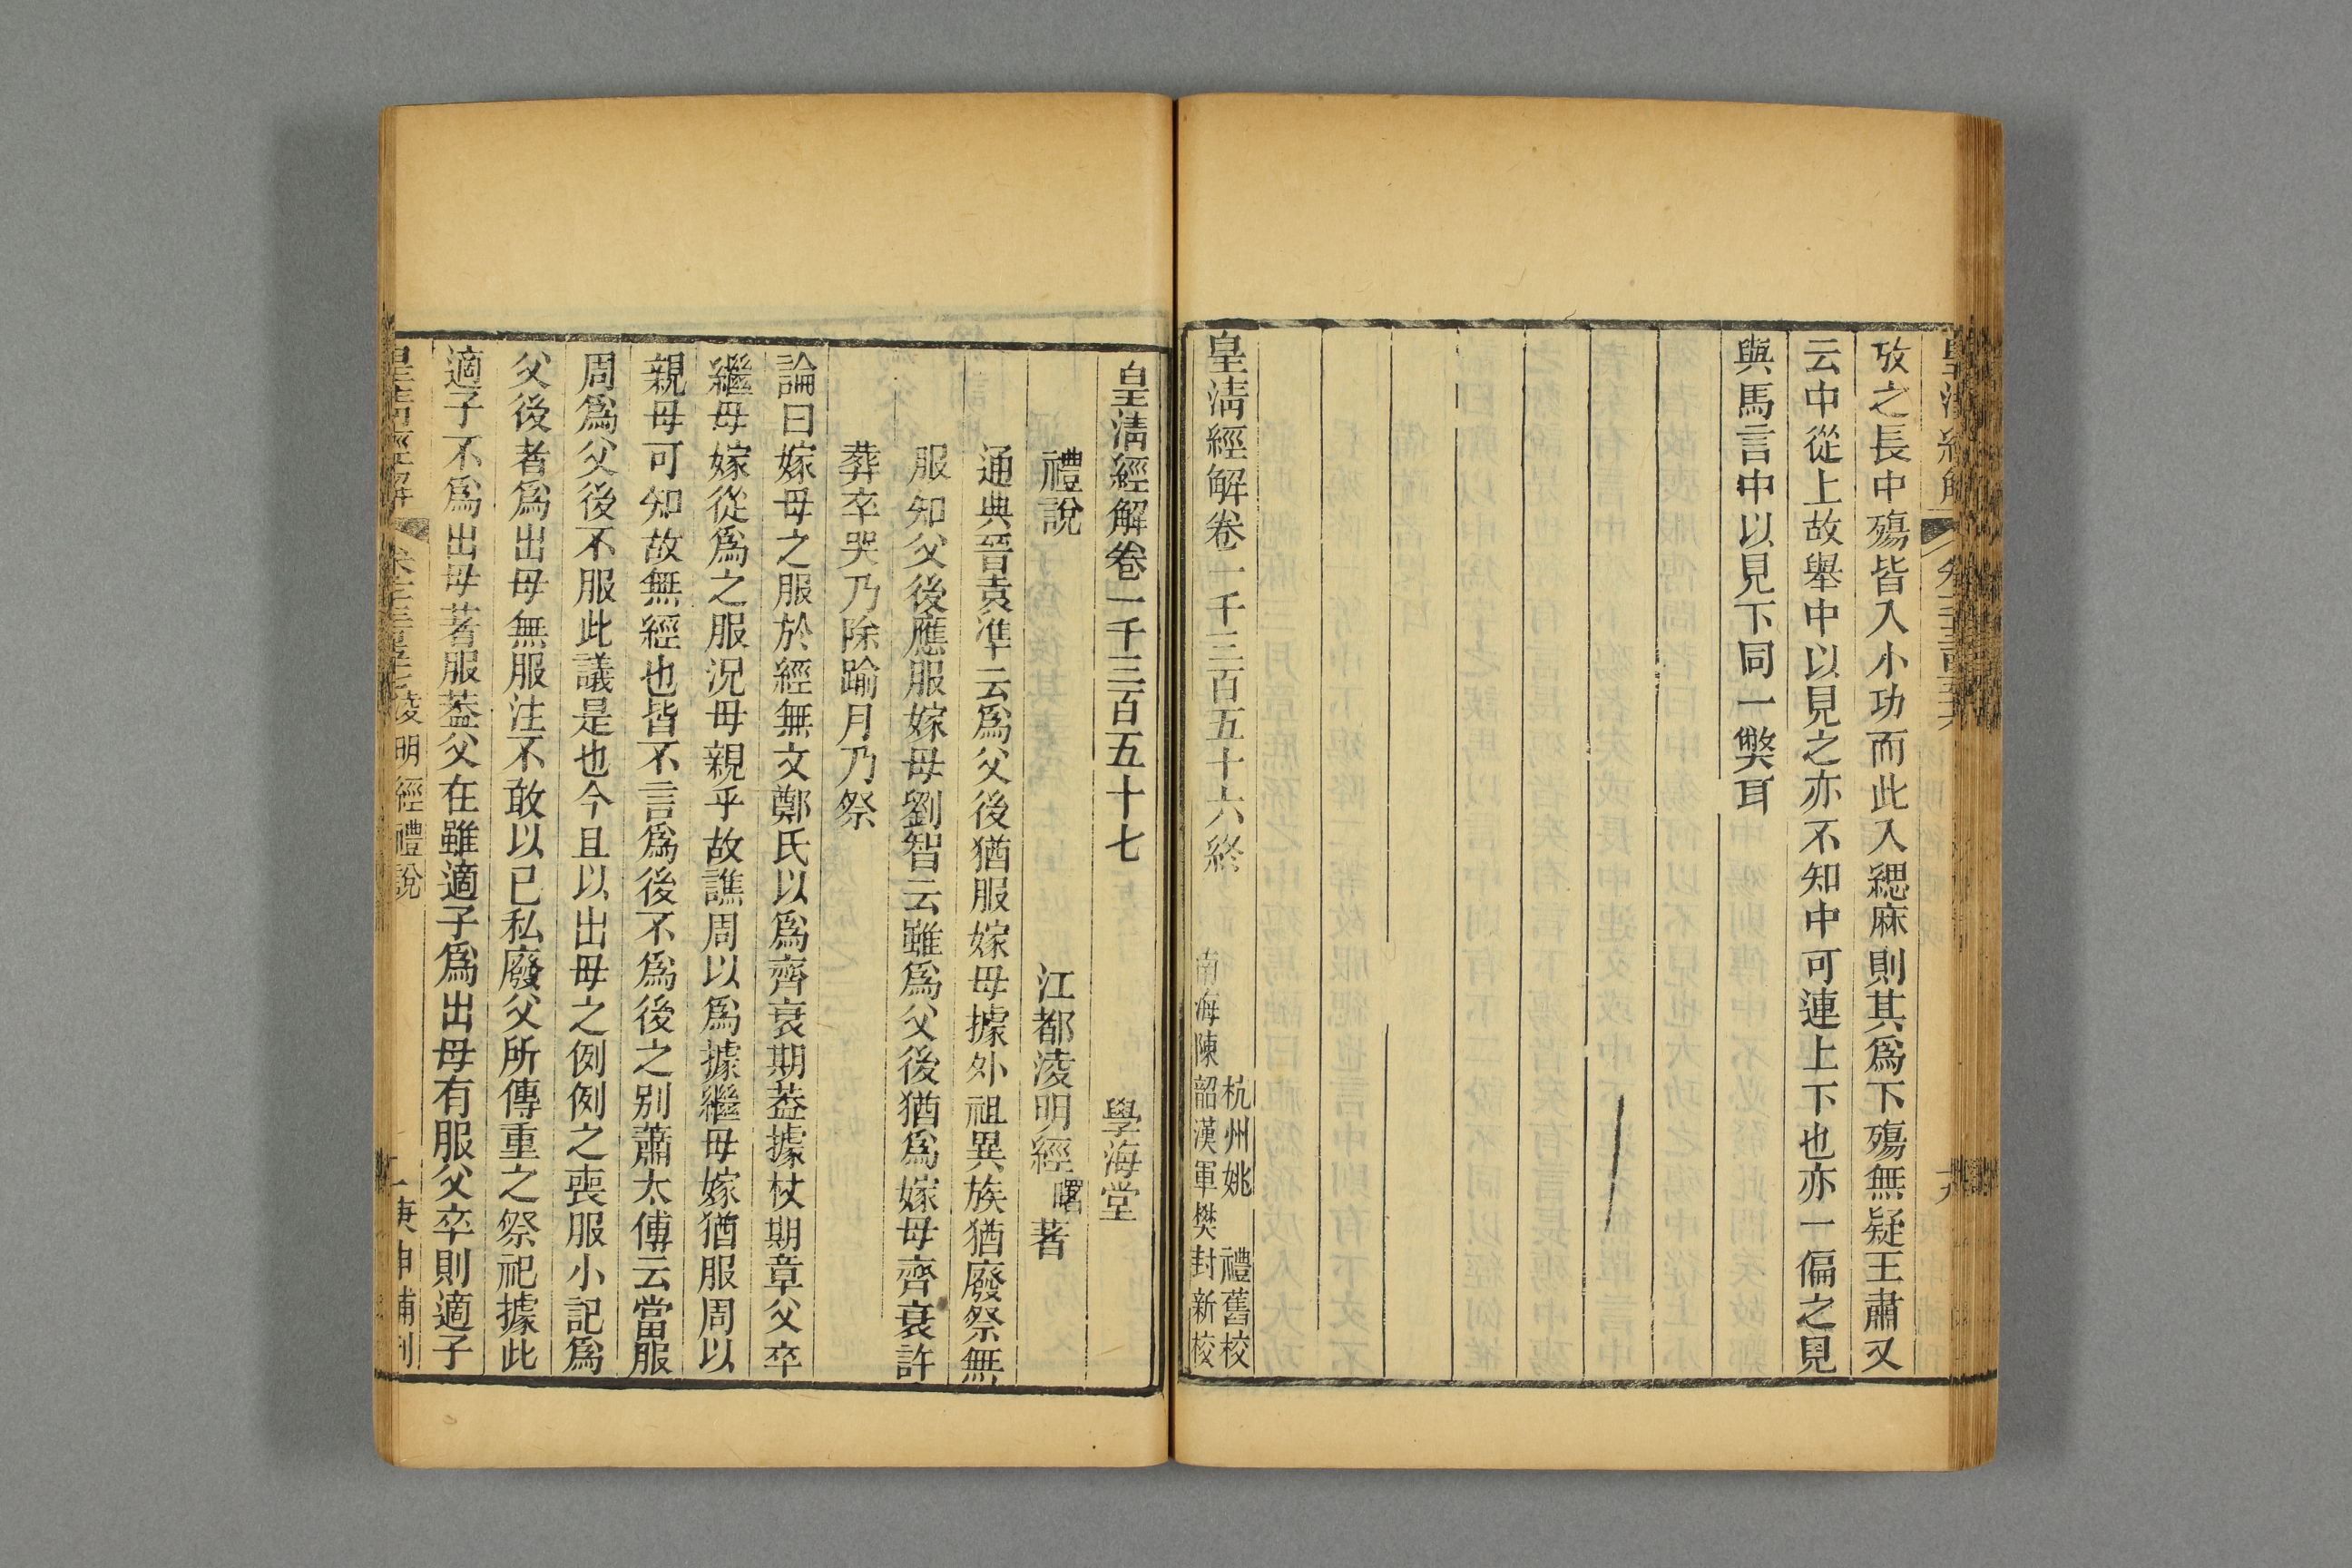 攷之長中殤皆入小功而此入緦麻則其爲下殤無疑王肅又
云中從上故舉中以見之亦不知中可連上下也亦一偏之見
與馬言中以見下同一獘耳
皇淸經解卷一千三百五十六終
杭州姚禮舊校
南海陳韶漢軍樊封新校
皇淸經解卷一千三百五十七
學海堂
禮說
江都淩明經曙著
通典晉袁準云爲父後猶服嫁母據外祖異族猶廢祭無
服知父後應服嫁母劉智云雖爲父後猶爲嫁母齊衰許
葬卒哭乃除踰月乃祭
論曰嫁母之服於經無文鄭氏以爲齊衰期葢據杖期章父卒
繼母嫁從爲之服況母親乎故譙周以爲據繼母嫁猶服周以
親母可知故無經也皆不言爲後不爲後之别蕭太傅云當服
周爲父後不服此議是也今且以出母之例例之喪服小記爲
父後者爲出母無服注不敢以已私廢父所傳重之祭祀據此
適子不爲出母著服葢父在雖適子爲出母有服父卒則適子
皇淸經解
淩明經禮說
一
庚申補刊